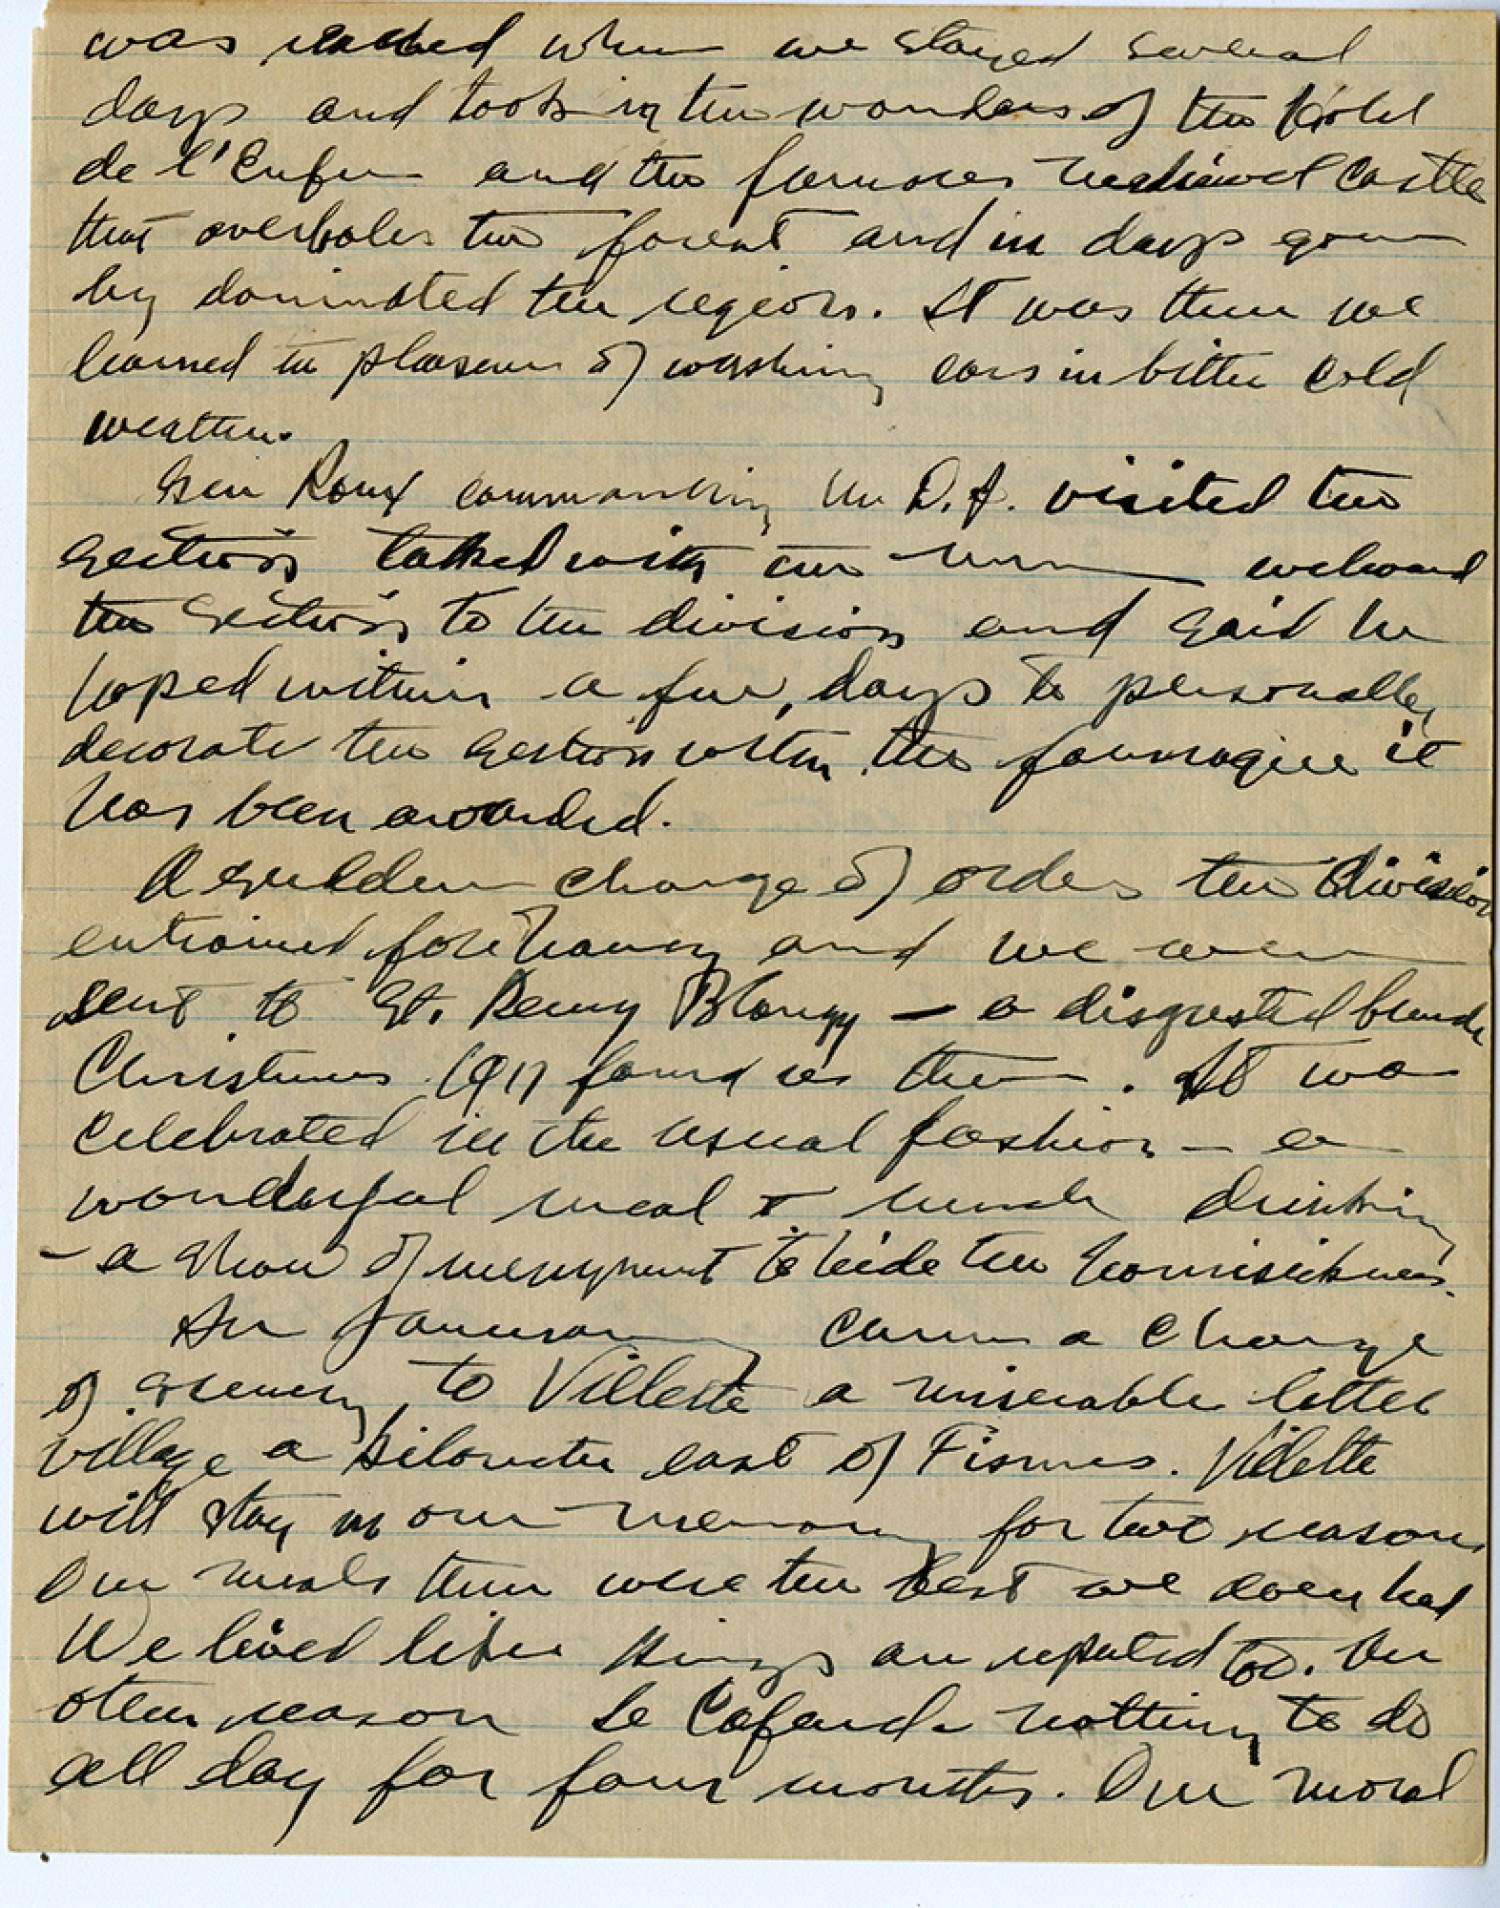 was reached where we stayed several
days and took in the wonders of the Hotel
de l'Enfer and the famous mediaeval castle
that overlooks the forest and in days gone
by dominated the region. It was there we
learned the pleasure of washing cars in bitter cold
weather.
Gen Roux commanding the D.I. visited the
section talked with the men welcomed
the section to the division and said he
hoped within a few days to personally
decorate the section with the fourragere it
has been awarded.
A sudden change of orders the division
entrained for Nancy and we were
sent to St. Remy Blanzy — a disgusted bunch
Christmas 1917 found us there. It was
celebrated in the usual fashion — a
wonderful meal & much drinking
— a show of merryment to hide the homesickness.
In January came a change
of scenery to Villette a miserable little
village a kilometer east of Fismes. Villette
will stay in our memory for two reasons
Our meals there were the best we ever had
We lived like kings and reputed too. The
other reason le Cafard nothing to do
all day for four months. Our moral